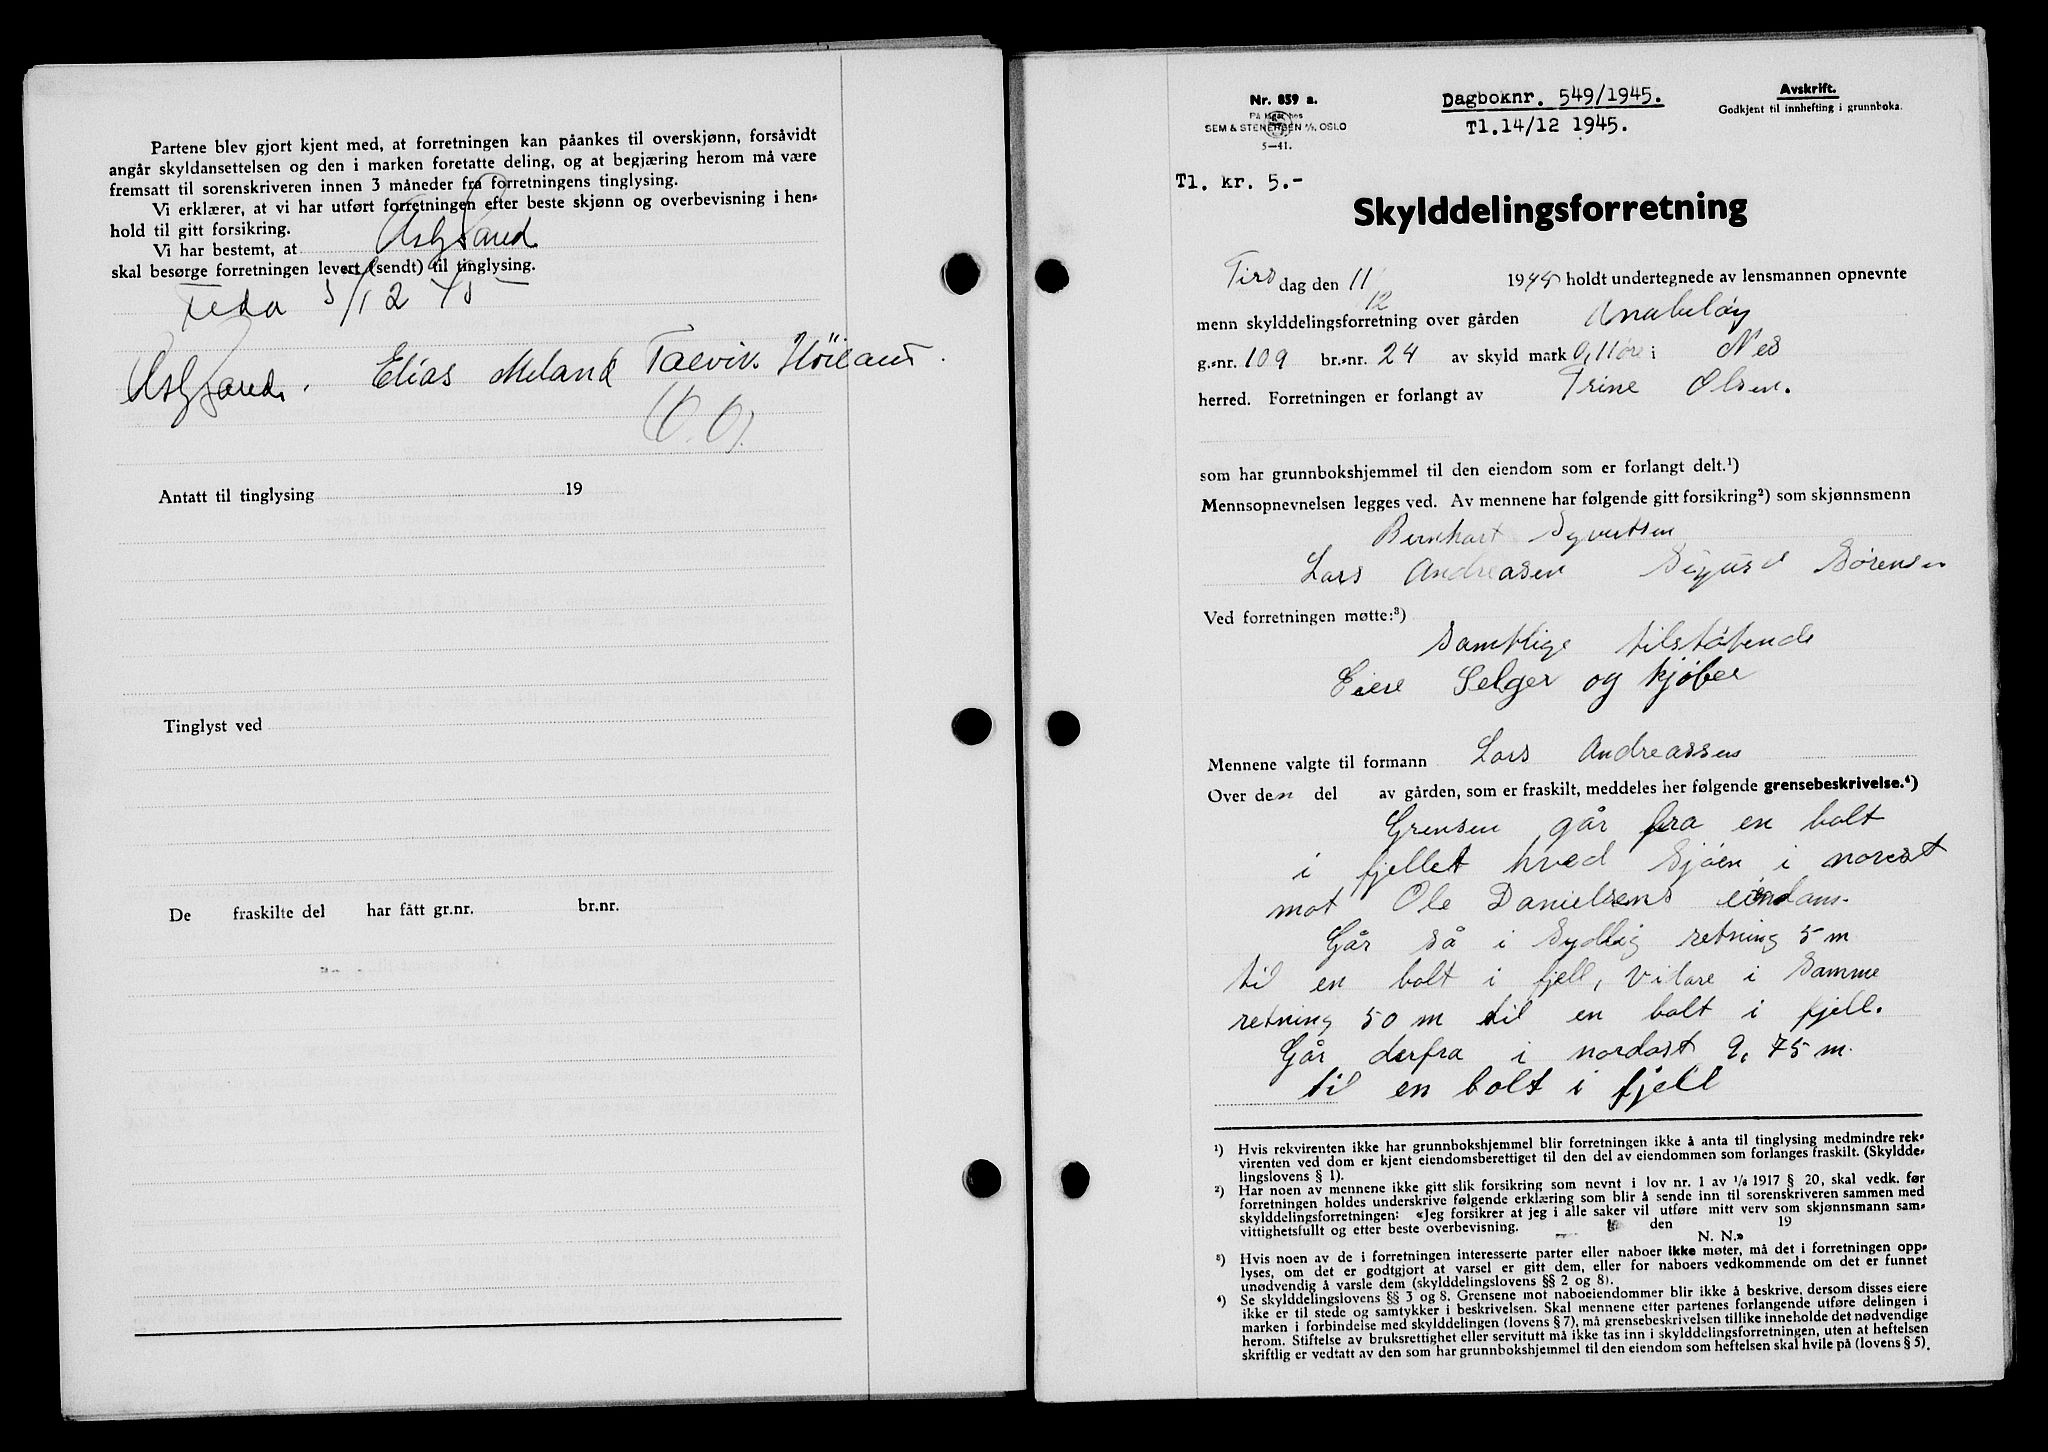 Partene blev gjort kjent med, at forretningen kan påankes til overskjønn, forsåvidt
angår skyldansettelsen og den i marken foretatte deling, og at begjæring herom må være
fremsatt til sorenskriveren innen 3 måneder fra forretningens tinglysing.
Vi erklærer, at vi har utført forretningen efter beste skjønn og overbevisning i hen-
hold til gitt forsikring.
Vi har bestemt, at
skal besørge forretningen levert (sendt) til tinglysing.
Feda 5/12 45
Elias Meland
Antatt til tinglysing 19
Tinglyst ved
De fraskilte del har fått gr.nr. br.nr.
Nr. 859 a.
På lager hos
SEM & STENERSEN A/S, OSLO
5—41.
Dagboknr. 549/1945.
Tl.14/12 1945.
Avskrift.
Godkjent til innhefting i grunnboka.
Tl. kr. 5.-
Skylddelingsforretning
Tirsdag den 11/12 1945 holdt undertegnede av lensmannen opnevnte
menn skylddelingsforretning over gården Anabeløy
g.-nr. 109 br.-nr. 24 av skyld mark 0,11 øre i Nes
herred. Forretningen er forlangt av Trine Olsen.
som har grunnbokshjemmel til den eiendom som er forlangt delt.¹)
Mennsopnevnelsen legges ved. Av mennene har følgende gitt forsikring²) som skjønnsmenn
Bernhart Syvertsen
Lars Andreasen Sigurd Sørensen
Ved forretningen møtte:³)
Samtlige tilstøtende
Eiere Selger og kjøber
Mennene valgte til formann Lars Andreassen
Over den del av gården, som er fraskilt, meddeles her følgende grensebeskrivelse.⁴)
Grensen går fra en bolt
i fjellet hved Sjøen i norest
mot Ole Danielsens eiendom.
Går så i Sydlig retning 5 m
til en bolt i fjell, vidare i samme
retning 50 m til en bolt i fjell.
Går derfra i nordost 9,75 m.
til en bolt i fjell
¹) Hvis rekvirenten ikke har grunnbokshjemmel blir forretningen ikke å anta til tinglysing medmindre rek-
virenten ved dom er kjent eiendomsberettiget til den del av eiendommen som forlanges fraskilt. (Skyldde-
lingslovens § 1).
²) Har noen av mennene ikke gitt slik forsikring som nevnt i lov nr. 1 av 1/6 1917 § 20, skal vedk. før
forretningen holdes underskrive følgende erklæring som blir å sende inn til sorenskriveren sammen med
skylddelingsforretningen: «Jeg forsikrer at jeg i alle saker vil utføre mitt verv som skjønnsmann sam-
vittighetsfullt og efter beste overbevisning. den 19
N. N.»
³) Hvis noen av de i forretningen interesserte parter eller naboer ikke møter, må det i forretningen opp-
lyses, om det er godtgjort at varsel er gitt dem, eller for naboers vedkommende om det er funnet
unødvendig å varsle dem (skylddelingslovens §§ 2 og 8).
⁴) Se skylddelingslovens §§ 3 og 8. Grensene mot naboeiendommer blir ikke å beskrive, dersom disses eiere
ikke er til stede og samtykker i beskrivelsen. Skal mennene etter partenes forlangende utføre delingen i
marken i forbindelse med skylddelingen (lovens § 7), må grensebeskrivelsen tillike inneholde det nødvendige
herom. Stiftelse av bruksrettighet eller servitutt må ikke tas inn i skylddelingsforretningen, uten at heftelsen
skriftlig er vedtatt av den som har grunnbokshjemmel til den eiendom som heftelsen skal hvile på (lovens § 5).